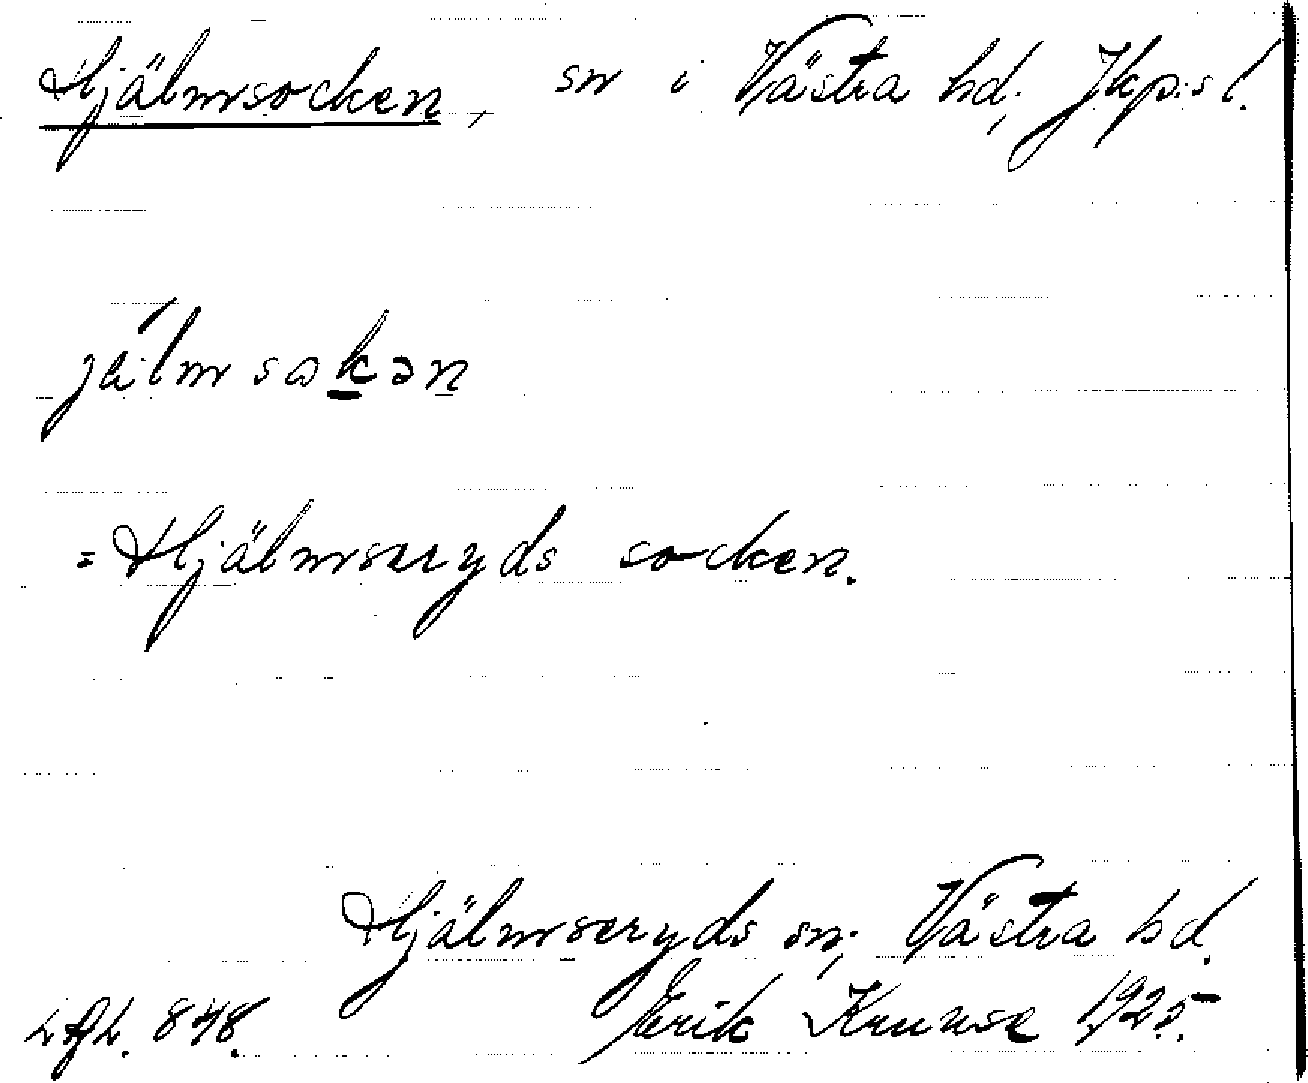 Hjälmsocken, sn i Västra hd, Jkp:s l.
jälmsokən
= Hjälmseryds socken.
Hjälmseryds sn, Västra hd.
848. Erik Kruuse 1925.